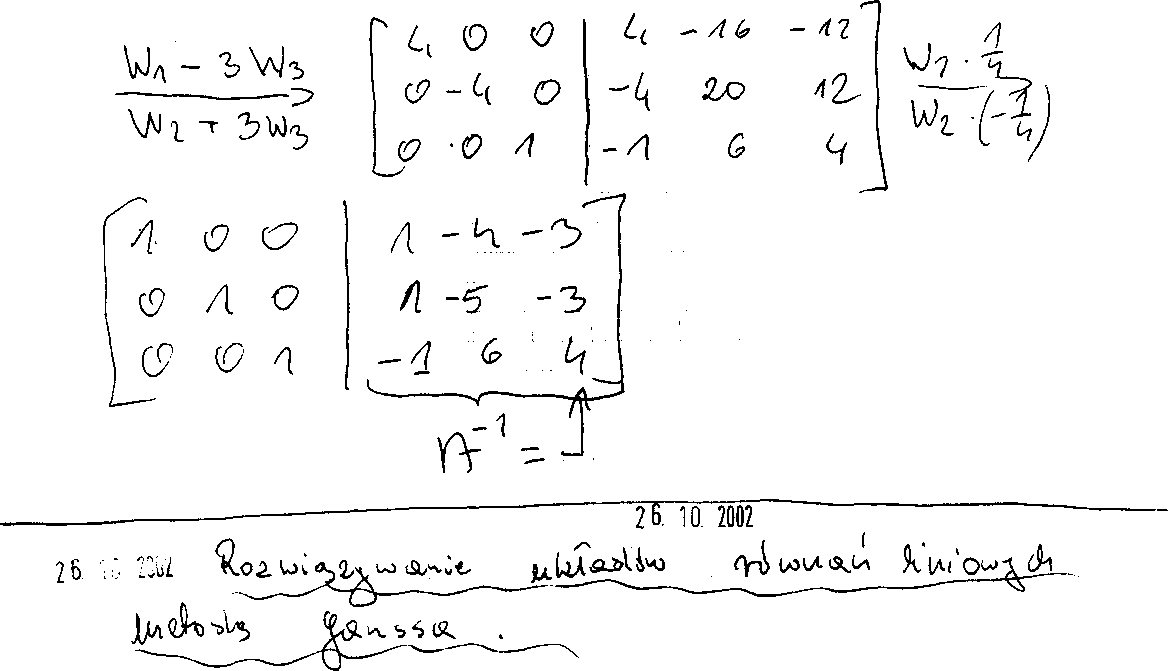 W1 - 3W3
W2 + 3W3
[ 4 0 0 | 4 -16 -12 ]
[ 0 -4 0 | -4 20 12 ]
[ 0 0 1 | -1 6 4 ]
W1 · 1/4
W2 · (-1/4)
[ 1 0 0 | 1 -4 -3 ]
[ 0 1 0 | 1 -5 -3 ]
[ 0 0 1 | -1 6 4 ]
A^-1 =
26. 10. 2002
26 10 2002 Rozwiązywanie układów równań liniowych
metodą Gaussa.